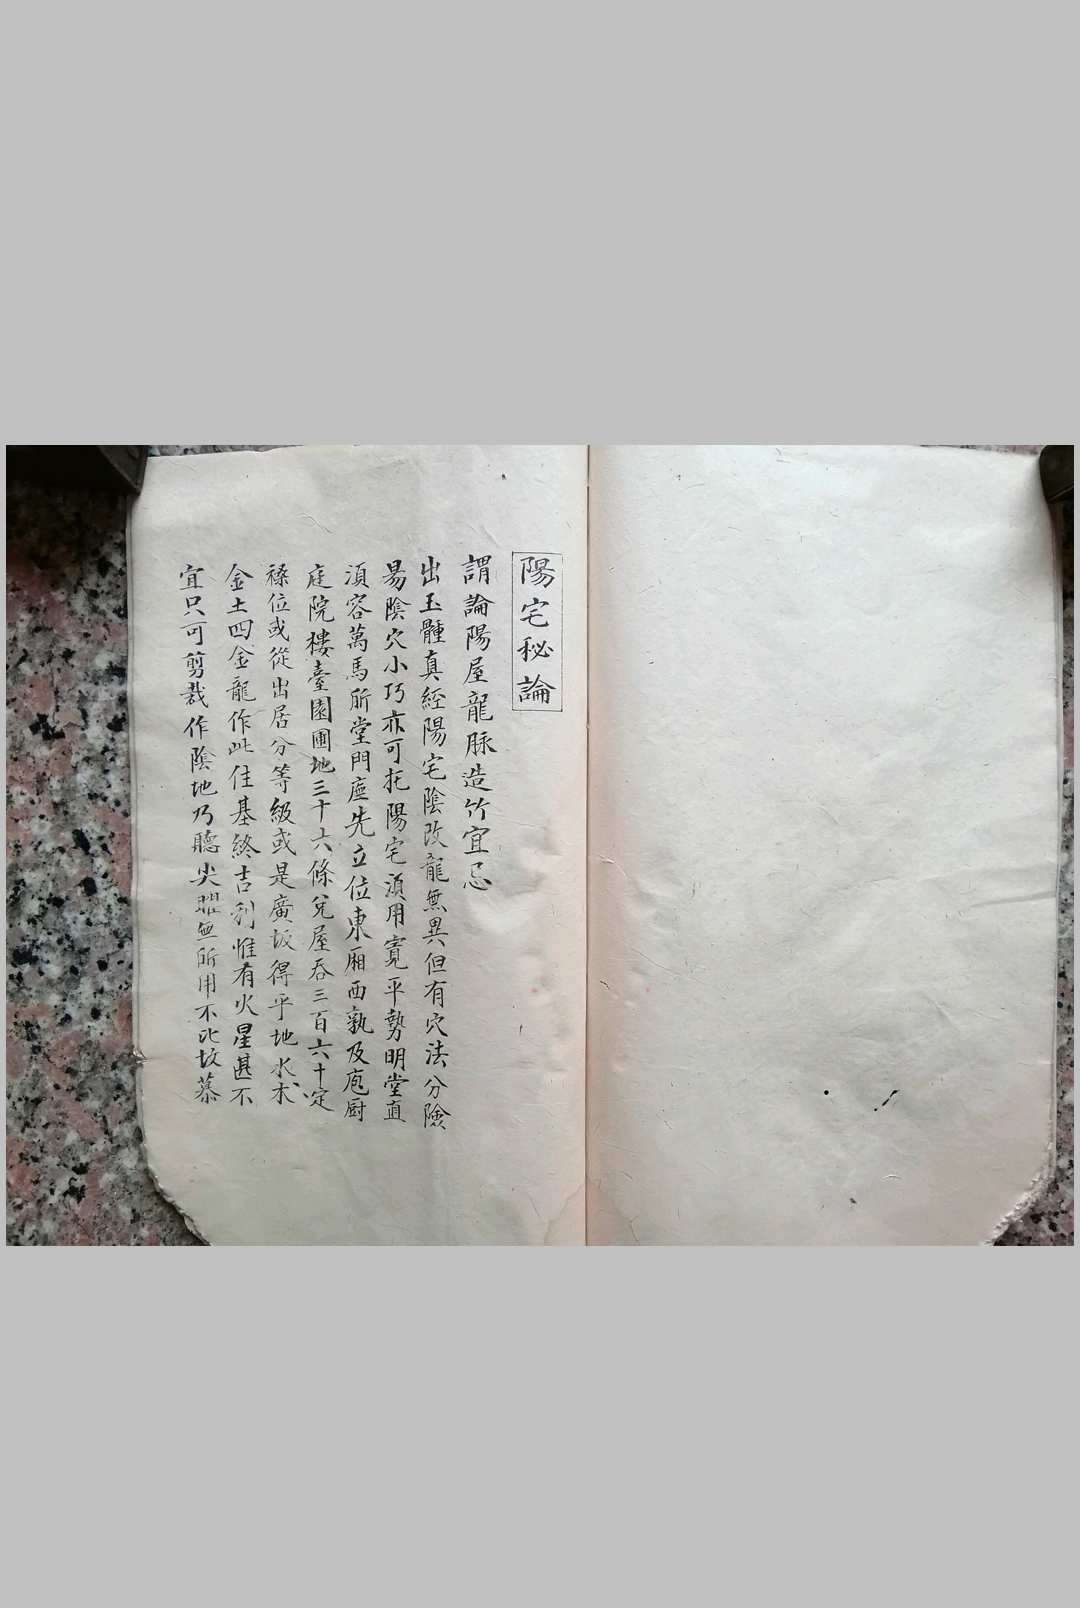 陽宅秘論
謂論陽屋龍脉造竹宜忌
出玉髓真經陽宅陰改龍無異但有穴法分險
昜陰穴小巧亦可扥陽宅湏用寛平勢明堂直
湏容萬馬所堂門庭先立位東厢西孰及庖厨
庭院樓臺園圃地三十六條兌屋吞三百六十定
祿位或從出居分等級或是廣坂得乎地水木
金土四金龍作此住基終吉利惟有火星甚不
宜只可剪裁作陰地乃聽尖曜無所用不比坟墓